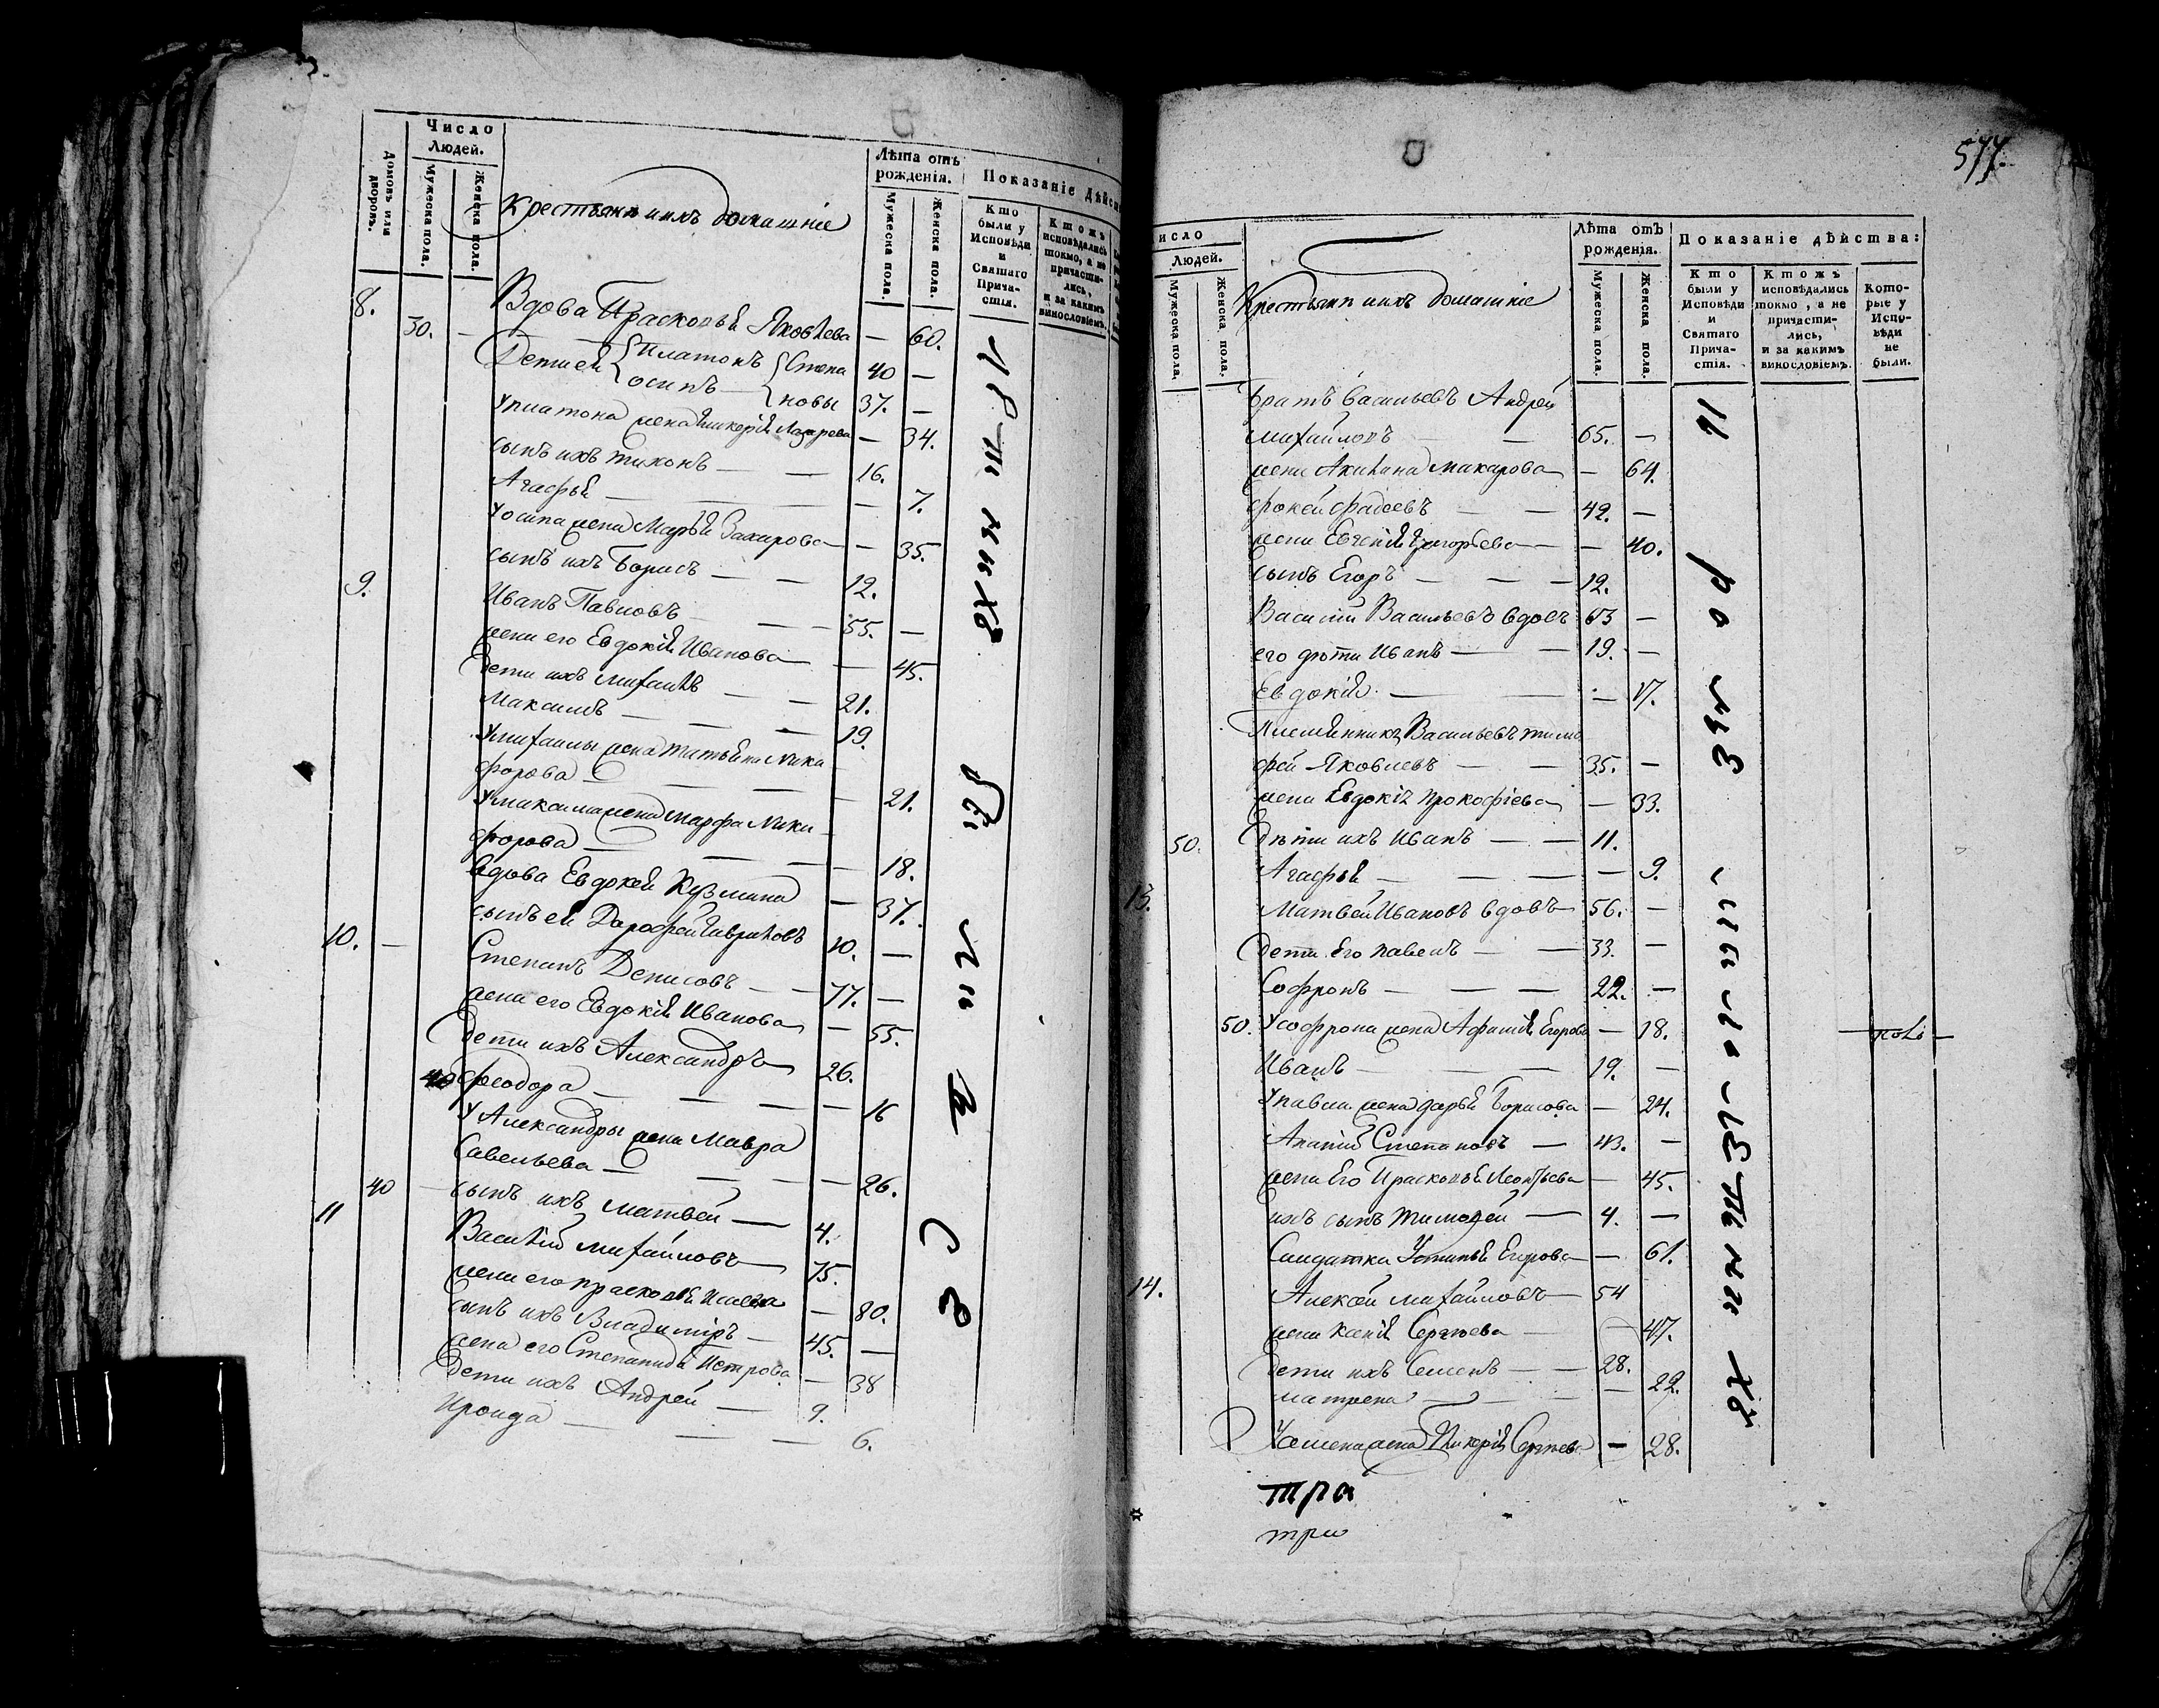 Число
Людей.
Домовъ или дворовъ.
Мужеска пола.
Женска пола.
Крестьяня ихъ домашніе
Лѣта отъ
рожденія.
Мужеска пола.
Женска пола.
Показаніе дѣйс
Кто
были у
Исповѣди
и
Святаго
Прича-
стія.
Ктожъ
исповѣдались
токмо, а не
причасти-
лись,
и за какимъ
винословіемъ.
8. 30. — Вдова Прасковья Яковлева — 60.
Дети ея Платонъ Степа 40 —
Осипъ новы 37. —
У Платона жена Гликерія Лазарева — 34.
сынъ ихъ Тихонъ — — 16.
Агафья — — — 7.
У Осипа жена Марья Захарова — — 35.
сынъ ихъ Борисъ — — 12.
9. Иванъ Павловъ — — 55. —
жена его Евдокія Иванова — 45.
Дети ихъ Михаилъ — — 21.
Максимъ — — — 19.
У Михаилы жена Татьяна Ники
форова — — — 21.
У Максима жена Марфа Ники
форова — — — 18.
вдова Евдокея Кузмина — 37.
сынъ ея Дарофей Гавриловъ 10. —
10. — Степанъ Денисовъ — — 77. —
жена его Евдокія Иванова — 55.
Дети ихъ Александръ 26.
Феодора — — — 16
У Александры жена Мавра
Савельева — — — 26.
40 — сынъ ихъ Матвей — 4.
11 Василій Михайловъ 75.
жена его Прасковья — 80.
сынъ ихъ Владимиръ — 45. —
жена его Степанида Петрова — 38
Дети ихъ Андрей — 9.
Ироида — — — 6.
577.
исло
Людей.
Мужеска пола.
Женска пола.
Крестьяня ихъ домашніе
Лѣта отъ
рожденія.
Мужеска пола.
Женска пола.
Показаніе дѣйства:
Кто
были у
Исповѣди
и
Святаго
Прича-
стія.
Ктожъ
исповѣдались
токмо, а не
причасти-
лись,
и за какимъ
винословіемъ.
Кото-
рые у
Испо-
вѣди
не
были.
братъ Васильевъ Андрей
Михайловъ — — 65. —
жена Акилина Макарова — 64.
Фокей Фадеевъ — — 42. —
жена Евгенія Григорьева — — 40.
сынъ Егоръ — — — 12.
Василій Васильевъ вдовъ 63 —
его дѣти Иванъ — — 19. —
Евдокія — — — 17.
Племянникъ Васильевъ Тимо
фей Яковлевъ — — 35. —
жена Евдокія Прокофіева — 33.
50. дѣти ихъ Иванъ — — 11.
Агафья — — — — 9.
13. Матвей Ивановъ вдовъ 56. —
дети его Павелъ — — 33. —
Софронъ — — — 22. —
50. У Софрона жена Афимія Егорова — 18.
Иванъ — — — 19. —
У Павла жена Дарья Борисова — 24.
Степановъ — 43. —
жена его Прасковья Леонтьева — 45.
ихъ сынъ Тимофей — 4. —
Салдатка Устинья Егорова — 61.
14. Алексей Михайловъ — 54
жена Ксенія Сергѣева — — 47.
дети ихъ Семенъ — — 28.
Матрена — — — 22.
У Семена жена Гликерія Сергѣева — 28.
три
три